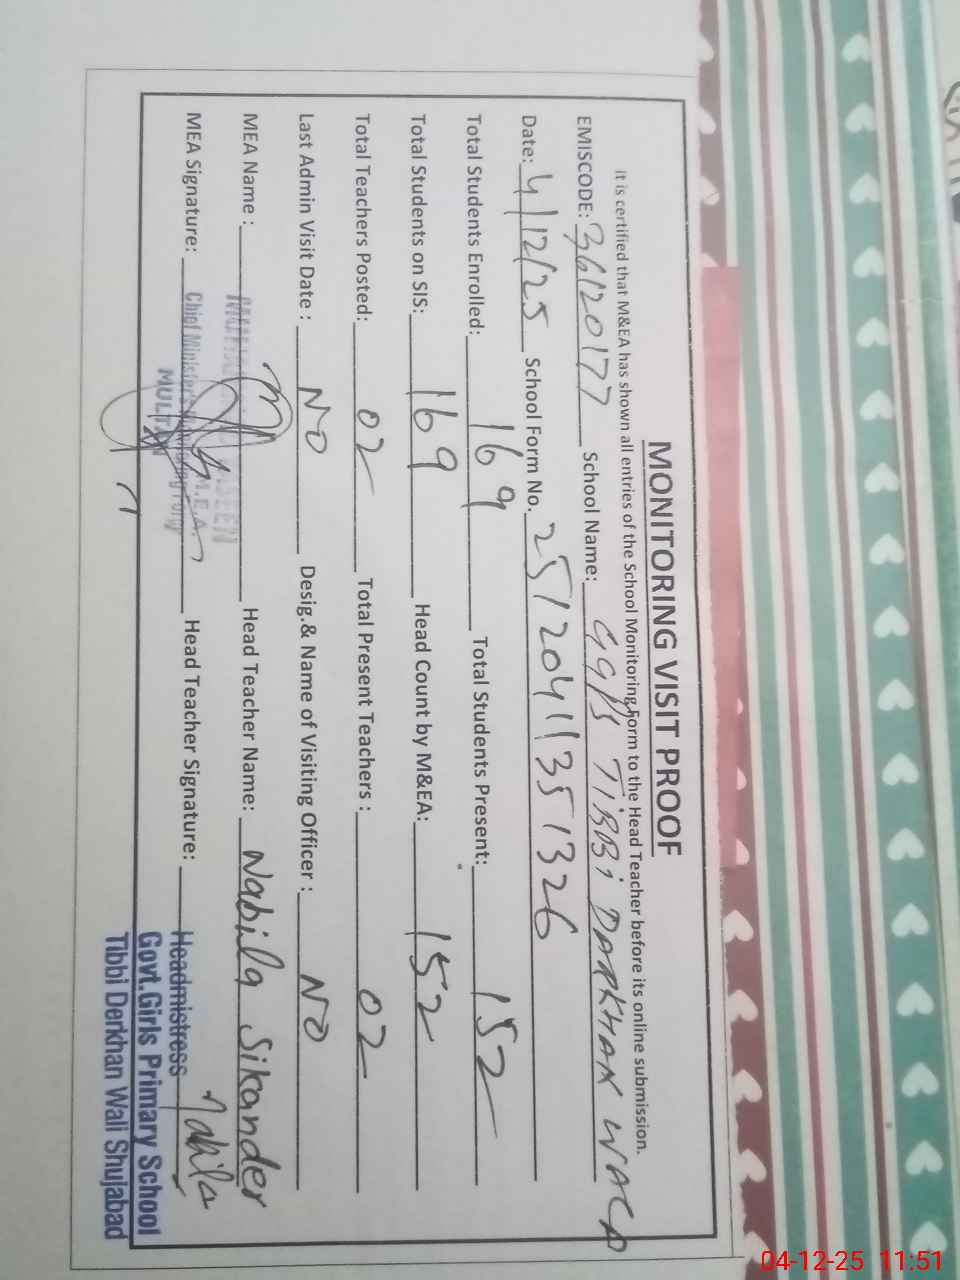 MONITORING VISIT PROOF
It is certified that M&EA has shown all entries of the School Monitoring Form to the Head Teacher before its online submission.
EMISCODE: 36120177 School Name: GGPS TIBBi DARKHAN WALA
Date: 4/12/25 School Form No. 25120411351326
Total Students Enrolled: 169 Total Students Present: 152
Total Students on SIS: 169 Head Count by M&EA: 152
Total Teachers Posted: 02 Total Present Teachers : 02
Last Admin Visit Date : NO Desig.& Name of Visiting Officer : NO
MEA Name : Head Teacher Name: Nabila Sikander
MEA Signature: Chief Minister's Monitoring Force Head Teacher Signature: Nabila
M.E.A
MULTAN
Headmistress
Govt.Girls Primary School
Tibbi Derkhan Wali Shujabad
04-12-25 11:51